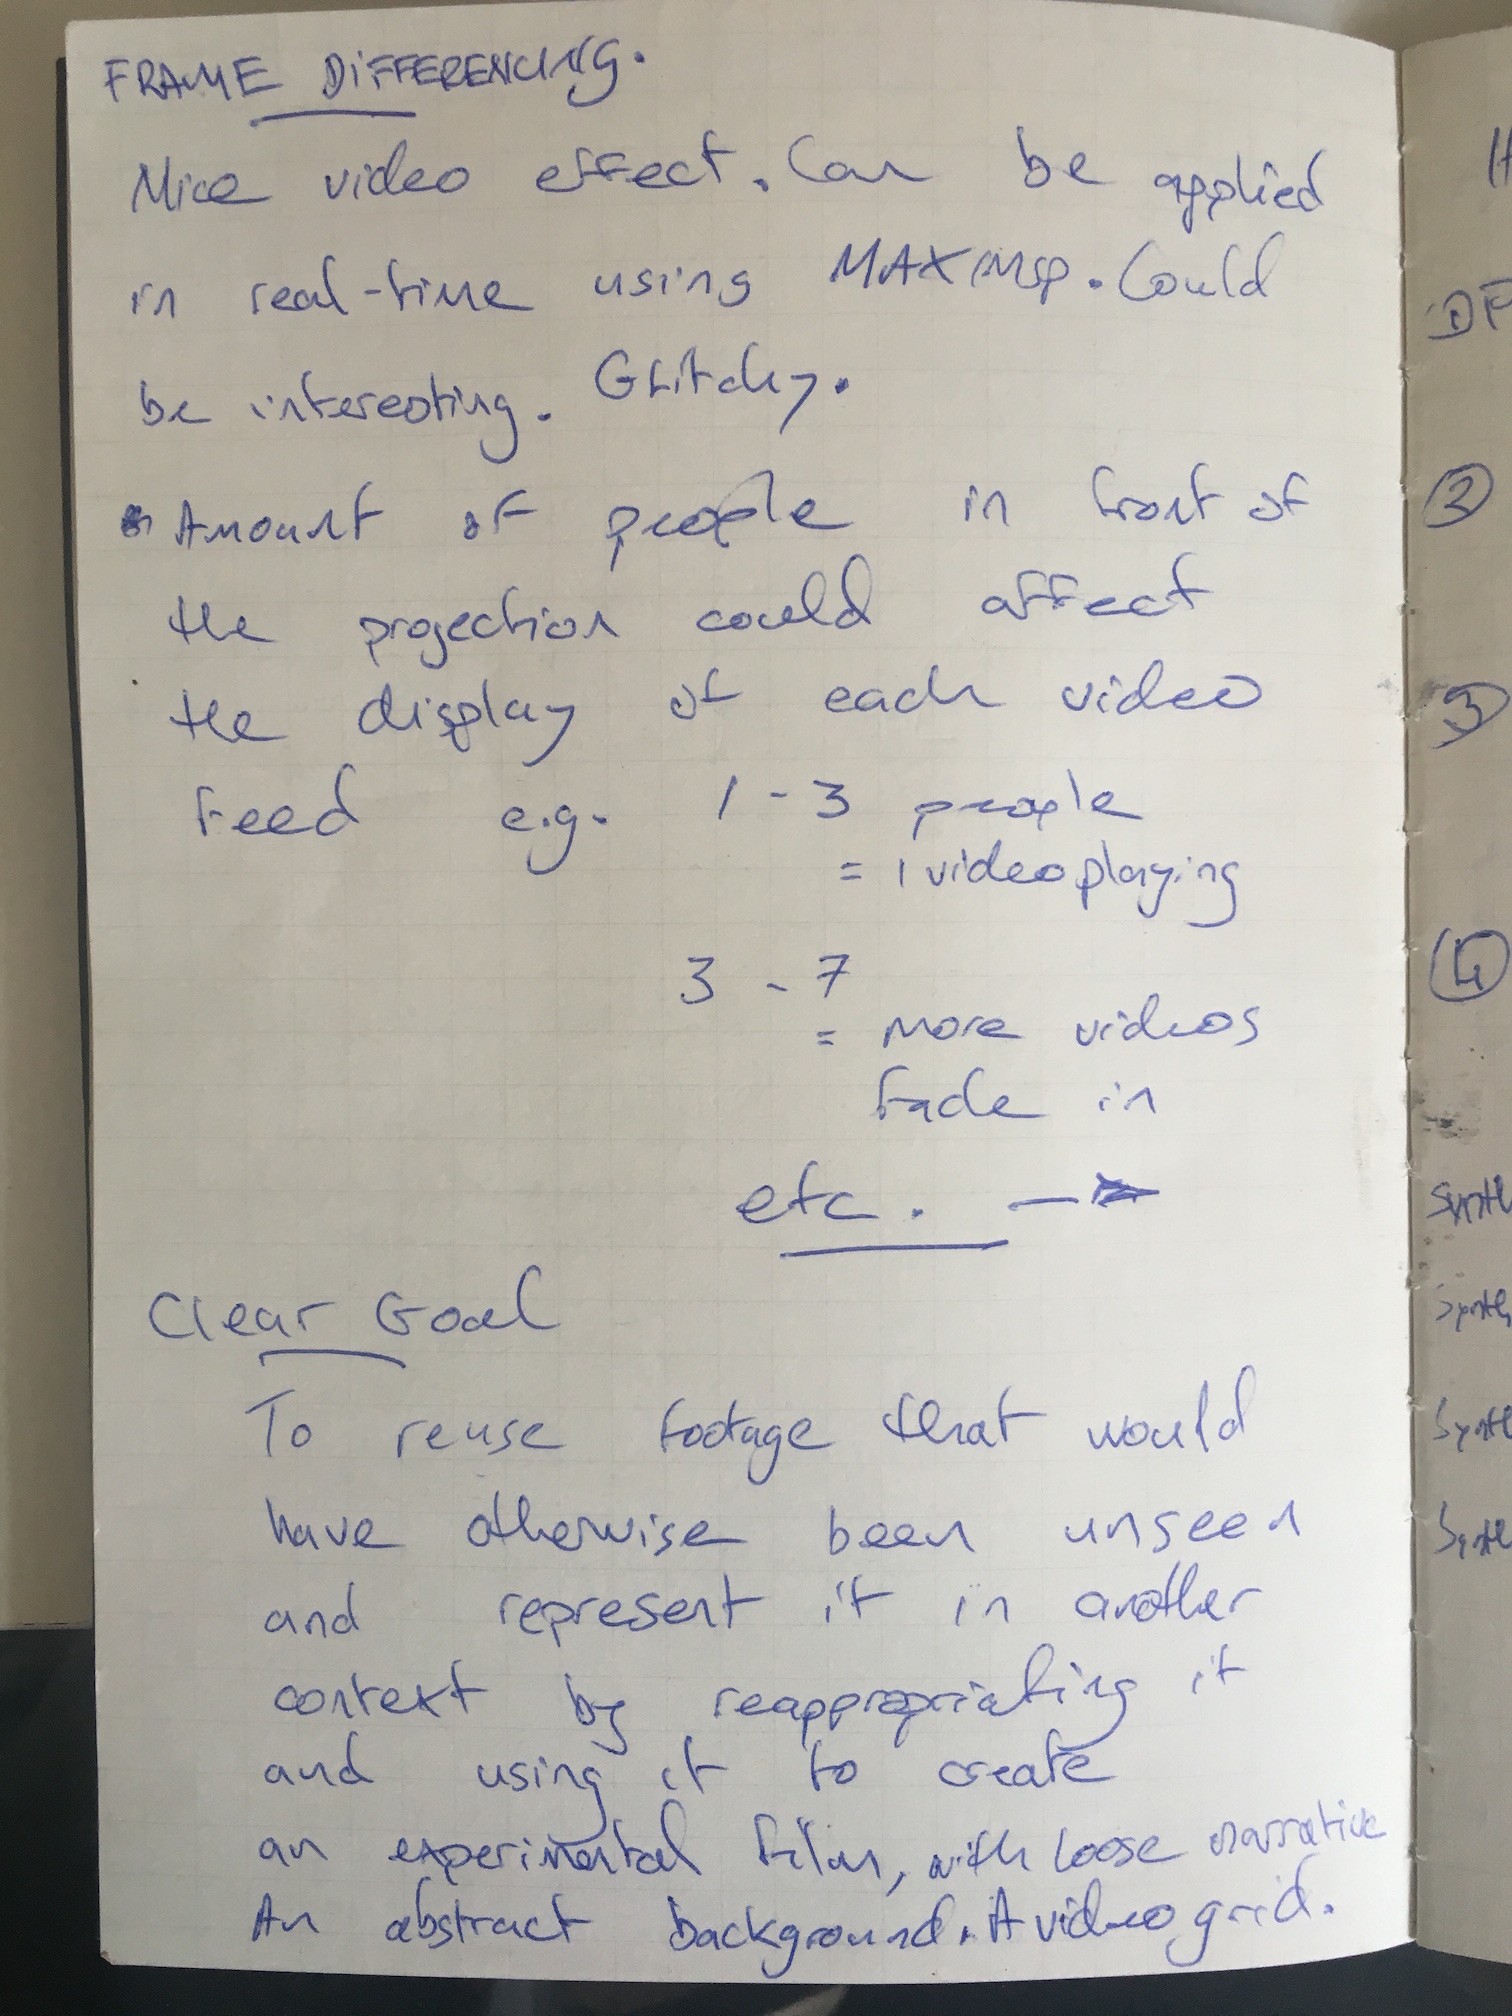 FRAME DIFFERENCING.
Nice video effect. Can be applied
in real-time using MAX/MSP. Could
be interesting. Glitchy.
Amount of people in front of
the projection could affect
the display of each video
feed e.g. 1 - 3 people
= 1 video playing
3 - 7
= more videos
fade in
etc. →
Clear Goal
To reuse footage that would
have otherwise been unseen
and represent it in another
context by reappropriating it
and using it to create
an experimental film, with loose narrative
An abstract background. A video grid.
H
DF
2
3
4
Synth
Synth
Synth
Synth